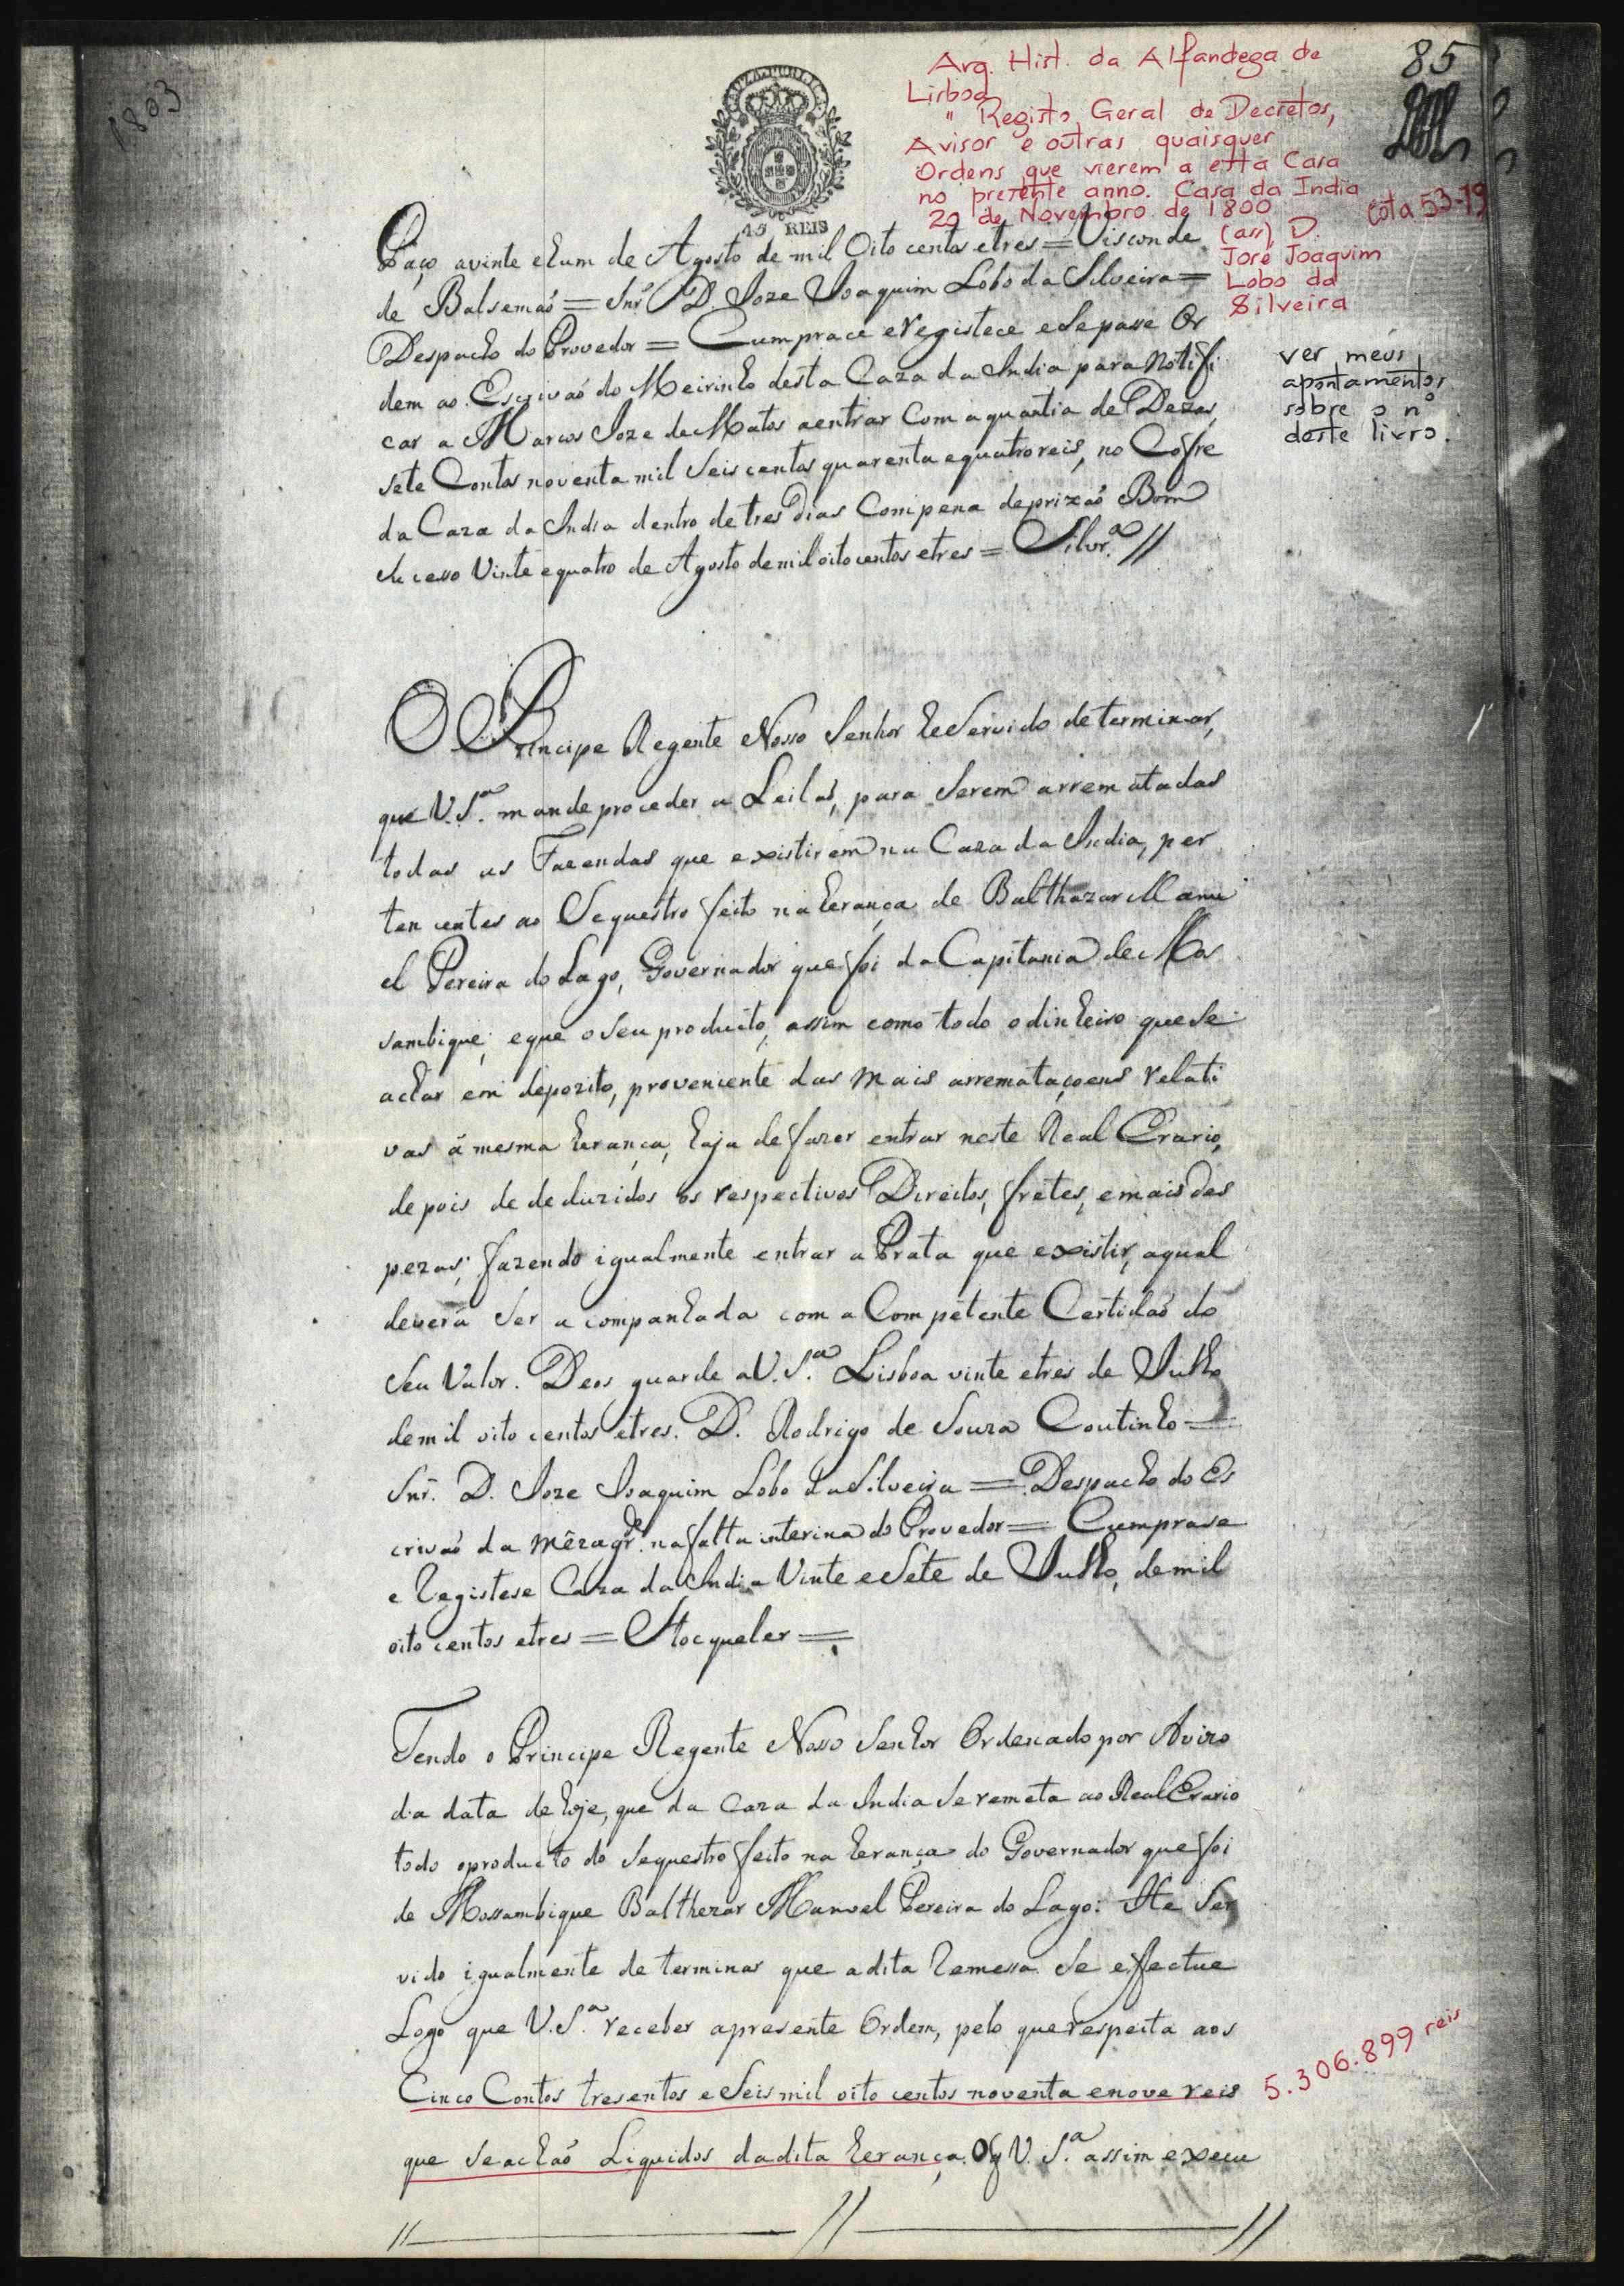 1803
85
Arq. Hist. da Alfandega de
Lisboa
" Registo Geral de Decretos,
Avisos e outras quaisquer
Ordens que vierem a esta Casa
no presente anno. Casa da India
20 de Novembro de 1800
cota 53-79
(ass) D.
José Joaquim
Lobo da
Silveira
ver meus
apontamentos
sobre o nº
deste livro.
45 REIS
Paço avinte ehum de Agosto de mil Oito centos etres = Visconde
de Balsemaõ = Snr D. Joze Joaquim Lobo da Silveira =
Despacho do Provedor = Cumprace eRegistece eSepasse Or
dem ao Escrivaõ do Meirinho desta Caza da India para Notifi
car a Marcos Joze de Matos aentrar Com aquantia de Dezas
sete Contos noventa mil Seis centos quarenta equatro reis, no Cofre
da Caza da India dentro de tres Dias Com pena deprizaõ Bom
Sucesso Vinte equatro de Agosto demil oito centos etres = Silvrª //
O Principe Regente Nosso Senhor he Servido determinar,
que V. Sª. mande proceder a Leilaõ, para Serem arrematadas
todas as Fazendas que existirem na Caza da India, per
tencentes ao Sequestro feito na herança de Balthazar Manu
el Pereira do Lago, Governador que foi da Capitania de Mos
sambique; eque oSeu producto, assim como todo odinheiro queSe
achar em depozito, proveniente das mais arremataçoens relati
vas á mesma herança, haja de fazer entrar neste Real Erario,
depois de deduzidos os respectivos Direitos, fretes, emais des
pezas; fazendo igualmente entrar a Prata que existir, aqual
deverá Ser acompanhada com a Competente Certidaõ do
Seu Valor. Deos guarde aV. Sª. Lisboa vinte etres de Julho
demil oito centos etres. D. Rodrigo de Souza Coutinho =
Snr. D. Joze Joaquim Lobo da Silveira = Despacho do Es
crivaõ da Mêzagrde. na falta interina do Provedor = Cumprase
e Registese Caza da India Vinte eSete de Julho, demil
oito centos etres = Stocqueler =
Tendo o Principe Regente Nosso Senhor Ordenado por Avizo
da data de hoje, que da Caza da India Se remeta ao Real Erario
todo oproducto do Sequestro feito na herança do Governador que foi
de Mossambique Balthezar Manoel Pereira do Lago: He Ser
vido igualmente determinar que adita Remessa Se effectue
Logo que V. Sª. receber apresente Ordem, pelo querespeita aos
Cinco Contos tresentos eSeis mil oito centos noventa enove reis
5.306.899 reis
que Seachaõ Liquidos dadita herança. Oq V. Sª. assim execu
// // //